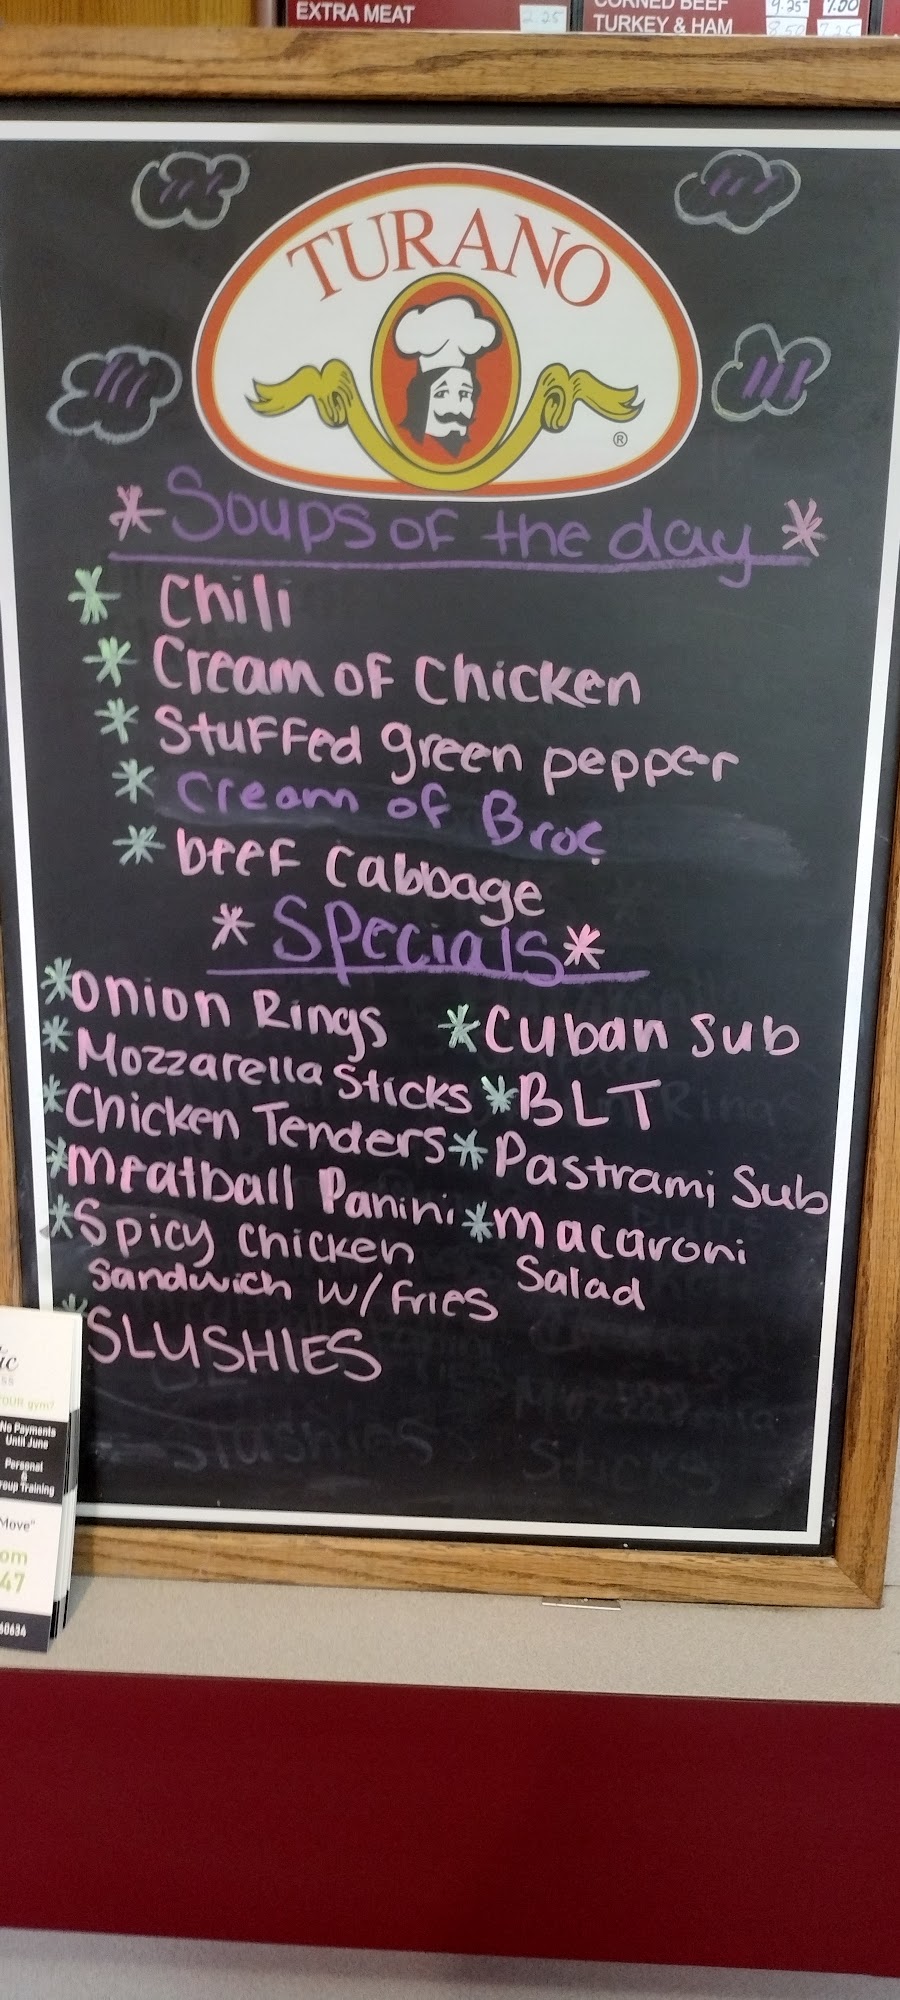 EXTRA MEAT 2.25
CORNED BEEF 9.25 7.50
TURKEY & HAM 8.50 7.25
TURANO
®
* Soups of the day *
* Chili
* Cream of Chicken
* Stuffed green pepper
* Cream of Broc
* beef cabbage
* Specials *
* Onion Rings
* Mozzarella Sticks
* Chicken Tenders
* Meatball Panini
* Spicy Chicken
Sandwich w/ Fries
* SLUSHIES
* Cuban Sub
* BLT
* Pastrami Sub
* Macaroni
Salad
Slushies
Sticks
YOUR gym?
No Payments
Until June
Personal
&
roup Training
Move"
om
47
60634